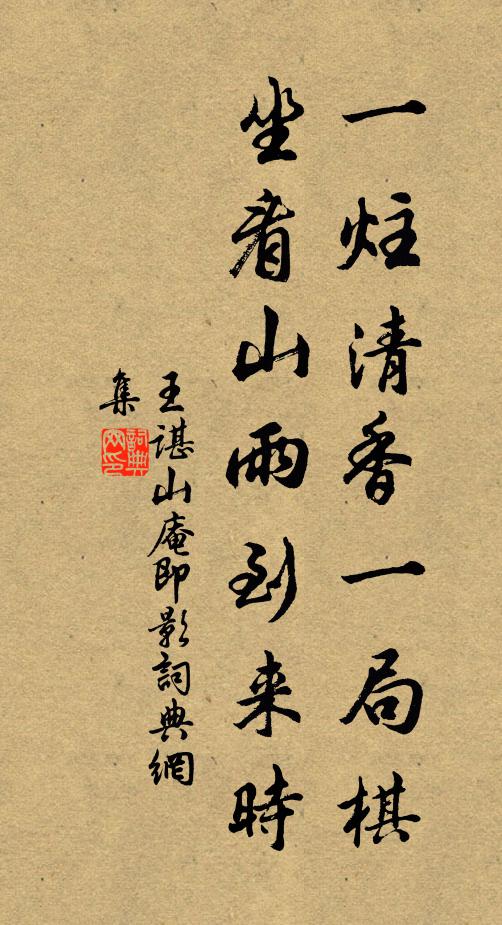 一炷清香一局棋
坐看山雨到来時
王諶山庵即影詞典網
集
詞典
网印